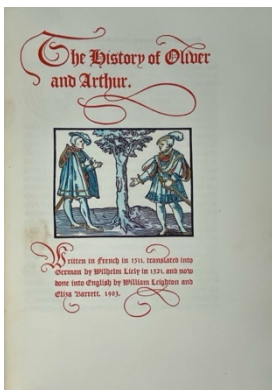 The History of Oliver
and Arthur.
Written in French in 1511, translated into
German by Wilhelm Liely in 1521, and now
done into English by William Leighton and
Eliza Barrett. 1903.